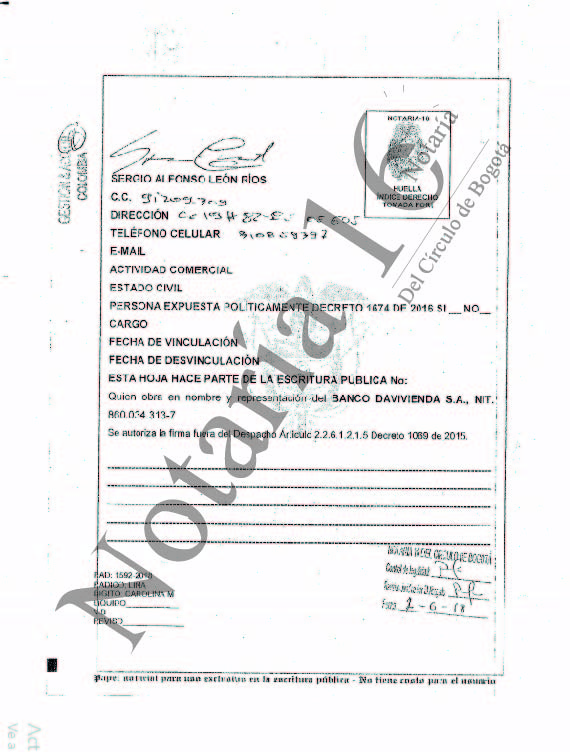 NOTARIA-16
HUELLA
INDICE DERECHO
TOMADA POR:
GESTION & 
COLOMBIA
SERGIO ALFONSO LEÓN RÍOS
C.C.
DIRECCIÓN
TELÉFONO CELULAR
E-MAIL
ACTIVIDAD COMERCIAL
ESTADO CIVIL
PERSONA EXPUESTA POLITICAMENTE DECRETO 1674 DE 2016 SI __ NO __
CARGO
FECHA DE VINCULACIÓN
FECHA DE DESVINCULACIÓN
ESTA HOJA HACE PARTE DE LA ESCRITURA PUBLICA No:
Quien obra en nombre y representación del BANCO DAVIVIENDA S.A., NIT.
860.034.313-7
Se autoriza la firma fuera del Despacho Artículo 2.2.6.1.2.1.5 Decreto 1069 de 2015.
Notaría 16
Notaría
Del Círculo de Bogotá
NOTARIA 16 DEL CIRCULO DE BOGOTA
Fecha 2-6-18
RAD: 1592-2018
RADICO: LIRA
DIGITO: CAROLINA M
LIQUIDO
REVISO
Papel notarial para uso exclusivo en la escritura pública - No tiene costo para el usuario
Act